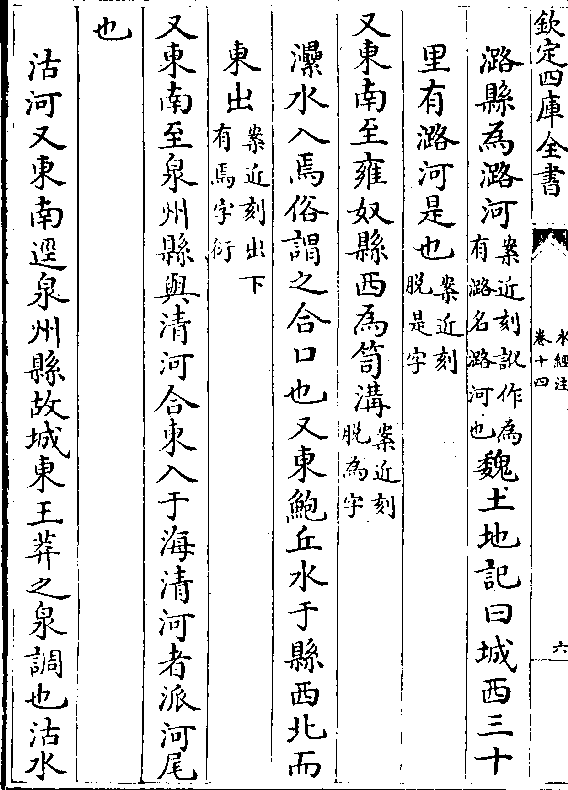 欽定四庫全書
水經注
卷十四
六
潞縣為潞河案近刻訛作為有潞名潞河也魏土地記曰城西三十
里有潞河是也案近刻脫是字
又東南至雍奴縣西為笥溝案近刻脫為字
㶟水入焉俗謂之合口也又東鮑丘水于縣西北而
東出案近刻出下有焉字衍
又東南至泉州縣與清河合東入于海清河者派河尾
也
沽河又東南逕泉州縣故城東王莽之泉調也沽水